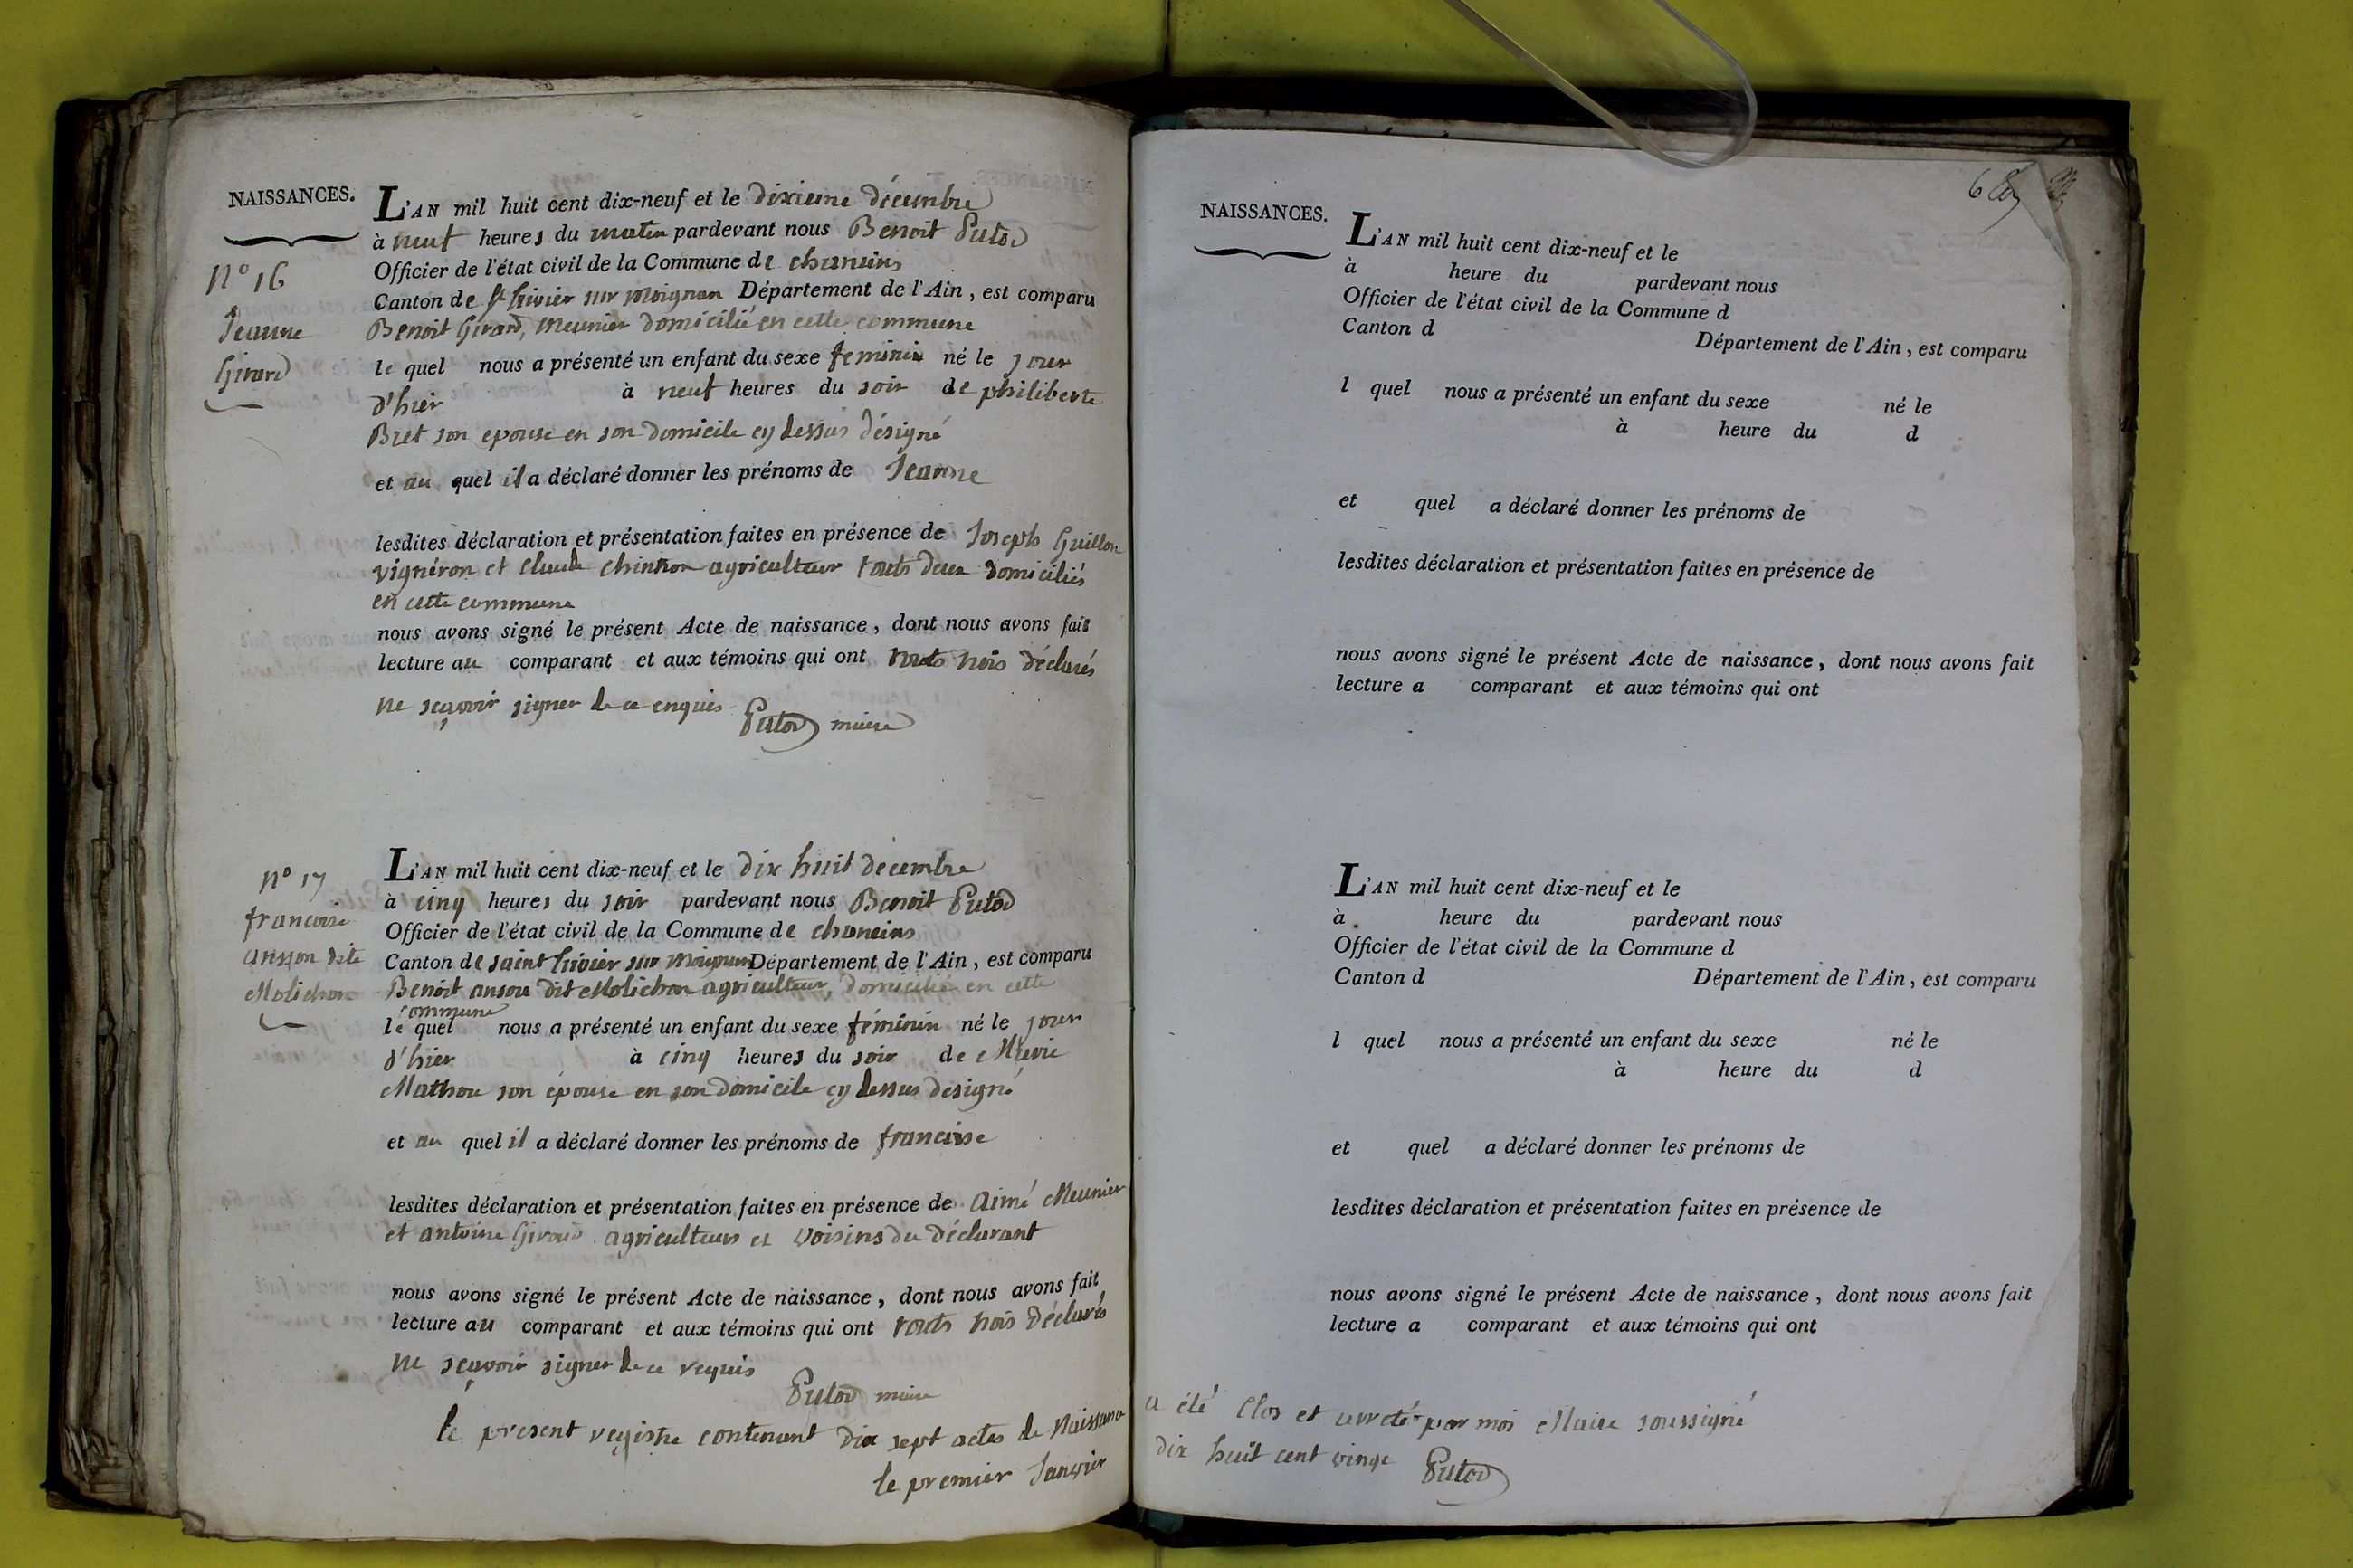 NAISSANCES.
L'AN mil huit cent dix-neuf et le dixieme décembre
à neuf heures du matin pardevant nous Benoit Putod
Officier de l'état civil de la Commune de chaneins
Canton de St trivier sur Moignan Département de l'Ain, est comparu
Benoit Girard, Meunier domicilié en cette commune
le quel nous a présenté un enfant du sexe feminin né le jour
d'hier à neuf heures du soir de philiberte
Bret son epouse en son domicile cy dessus désigné
et au quel il a déclaré donner les prénoms de Jeanne
lesdites déclaration et présentation faites en présence de Joseph Guillon
vignéron et claude agriculteur touts deux domiciliés
en cette commune
nous avons signé le présent Acte de naissance, dont nous avons fait
lecture au comparant et aux témoins qui ont touts trois déclarés
ne sçavoir signer de ce enquis
Putod maire
N° 16
Jeanne
Girard
L'AN mil huit cent dix-neuf et le dix huit décembre
à cinq heures du soir pardevant nous Benoit Putod
Officier de l'état civil de la Commune de chaneins
Canton de saint trivier sur Moignan Département de l'Ain, est comparu
Benoit anson dit Molichon agriculteur, domicilié en cette
commune
le quel nous a présenté un enfant du sexe féminin né le jour
d'hier à cinq heures du soir de Marie
son épouse en son domicile cy dessus désigné
et au quel il a déclaré donner les prénoms de francoise
lesdites déclaration et présentation faites en présence de aimé Meunier
et antoine Giroud agriculteurs et voisins du déclarant
nous avons signé le présent Acte de naissance, dont nous avons fait
lecture au comparant et aux témoins qui ont touts trois déclarés
ne sçavoir signer de ce requis
Putod maire
N° 17
francoise
ansson dite
Molichon
le présent registre contenant dix sept actes de Naissance
le premier Janvier
NAISSANCES.
L'AN mil huit cent dix-neuf et le
à heure du pardevant nous
Officier de l'état civil de la Commune d
Canton d Département de l'Ain, est comparu
l quel nous a présenté un enfant du sexe né le
à heure du d
et quel a déclaré donner les prénoms de
lesdites déclaration et présentation faites en présence de
nous avons signé le présent Acte de naissance, dont nous avons fait
lecture a comparant et aux témoins qui ont
L'AN mil huit cent dix-neuf et le
à heure du pardevant nous
Officier de l'état civil de la Commune d
Canton d Département de l'Ain, est comparu
l quel nous a présenté un enfant du sexe né le
à heure du d
et quel a déclaré donner les prénoms de
lesdites déclaration et présentation faites en présence de
nous avons signé le présent Acte de naissance, dont nous avons fait
lecture a comparant et aux témoins qui ont
a été Clos et arreté par moi Maire soussigné
dix huit cent vingt Putod